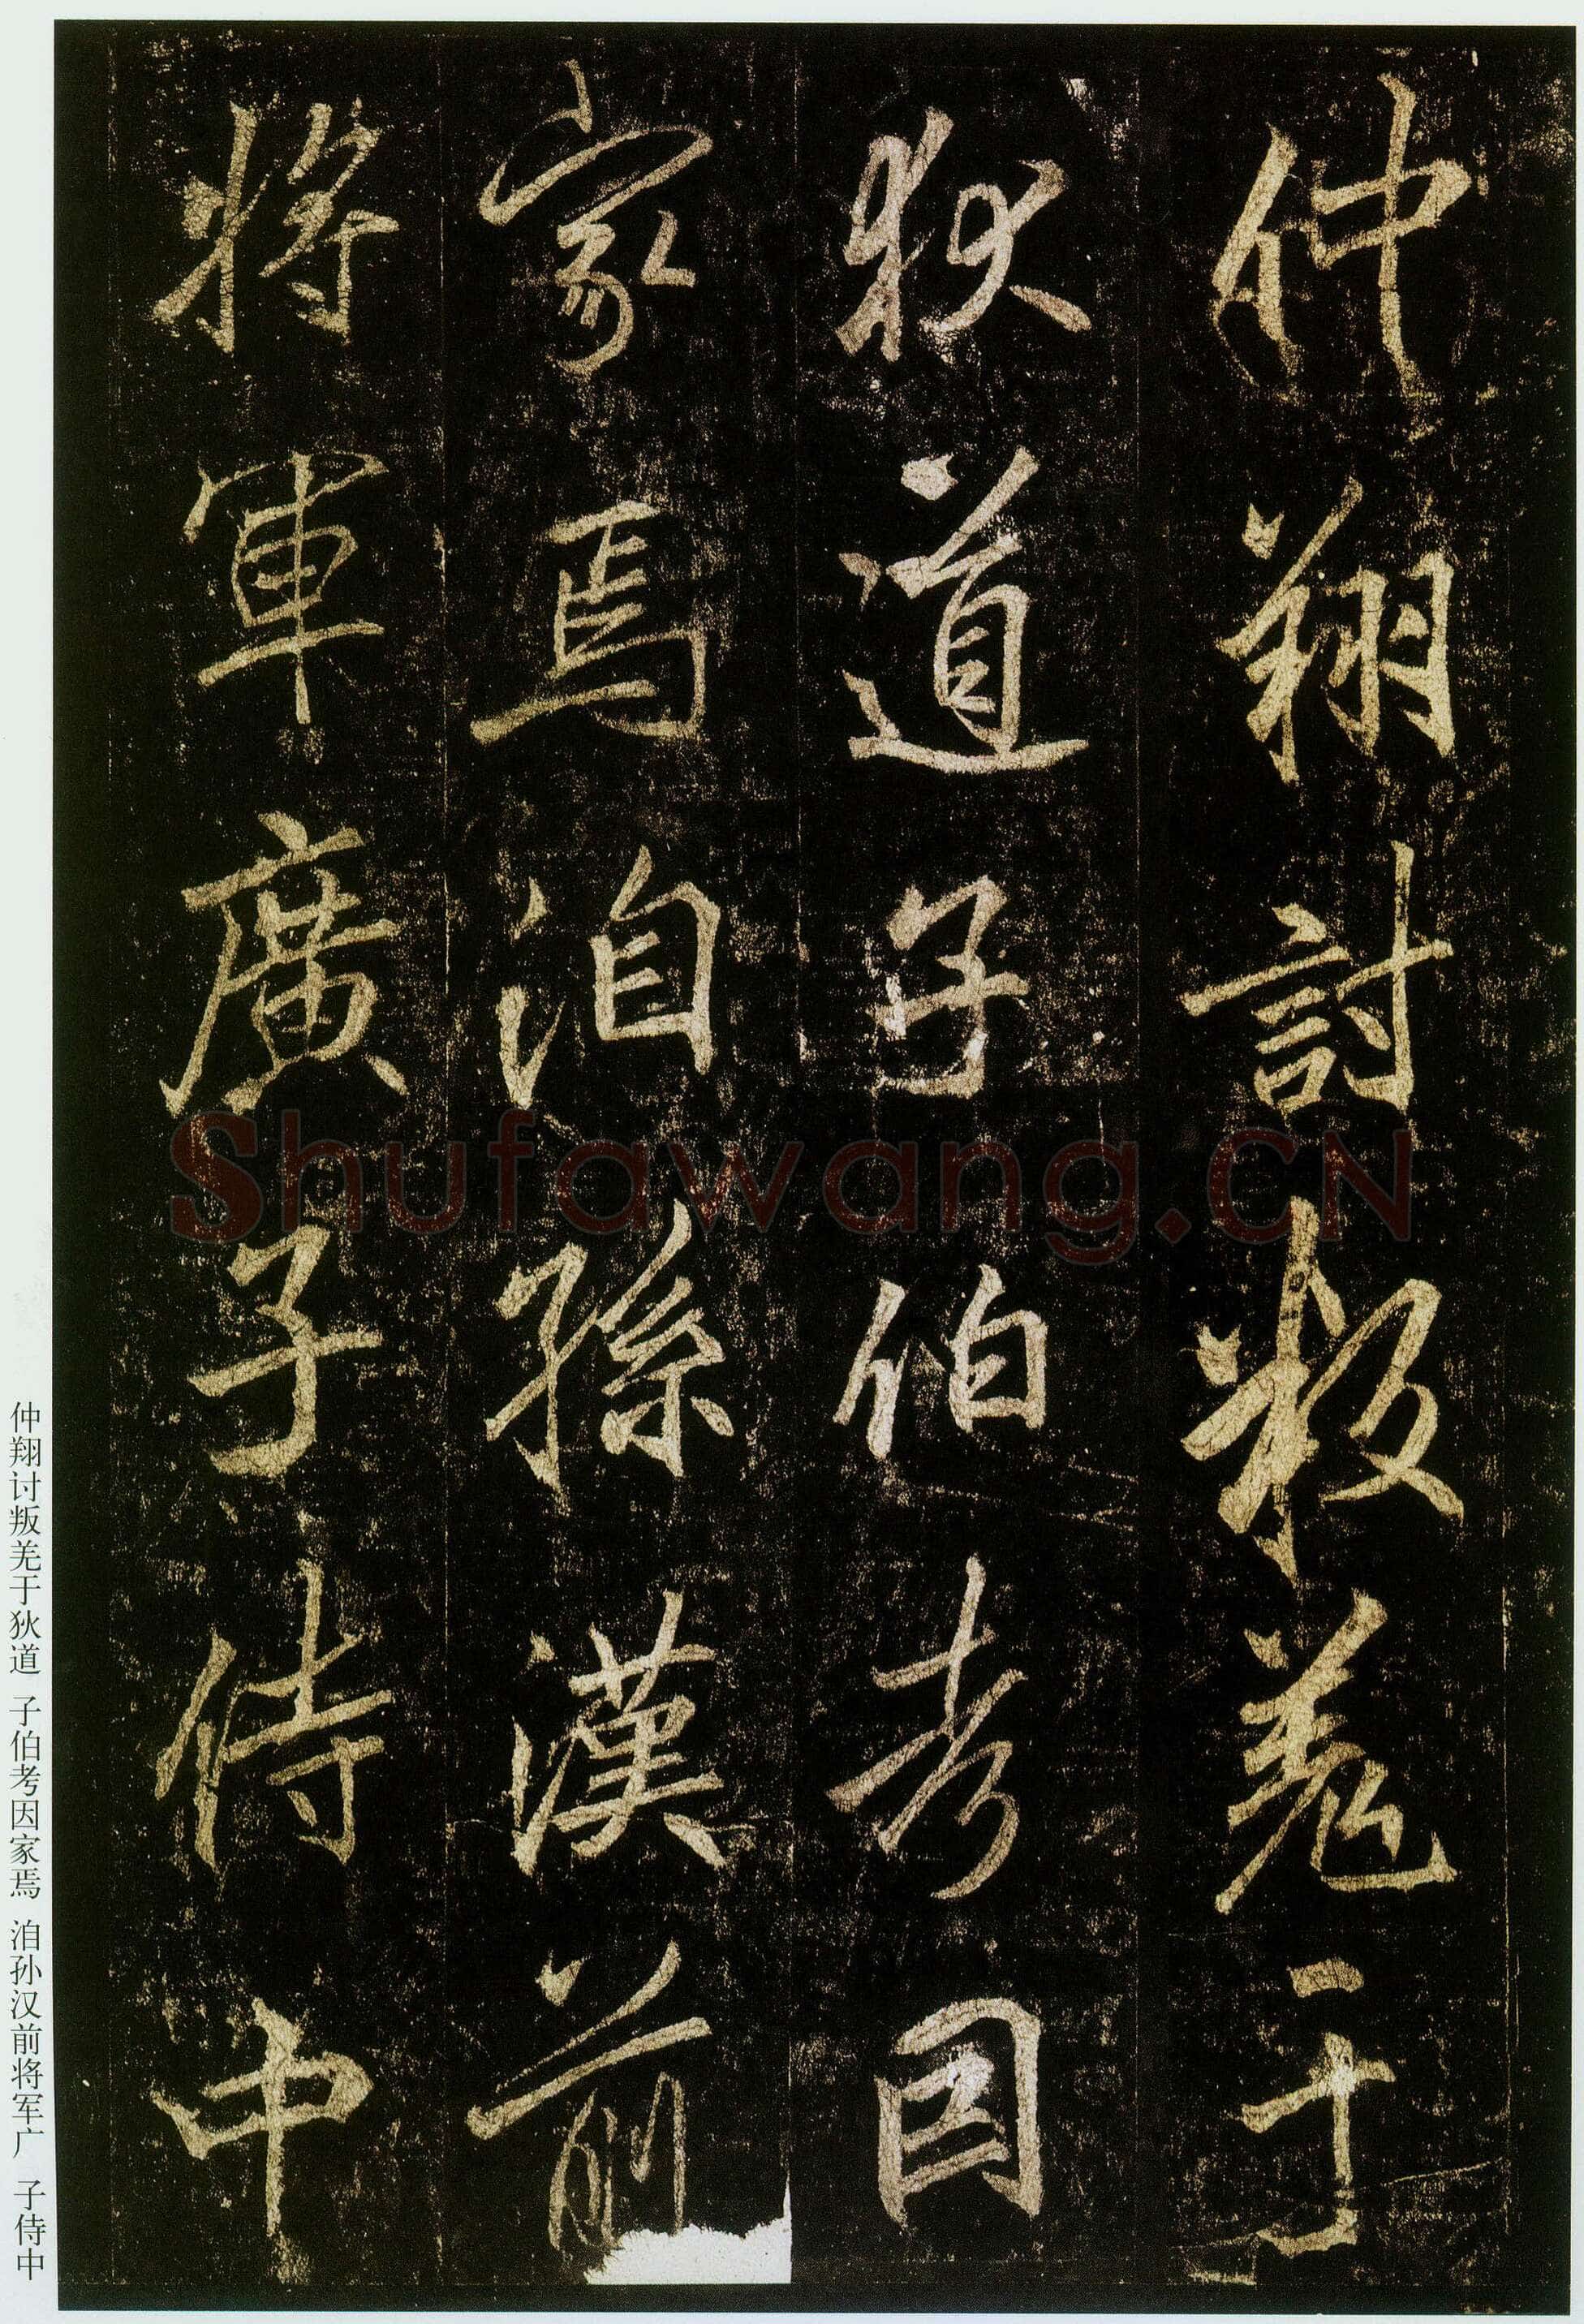 仲翔討叛羌于
狄道子伯考因
家焉洎孫漢前
將軍廣子侍中
仲翔讨叛羌于狄道 子伯考因家焉 洎孙汉前将军广 子侍中
Shufawang.CN